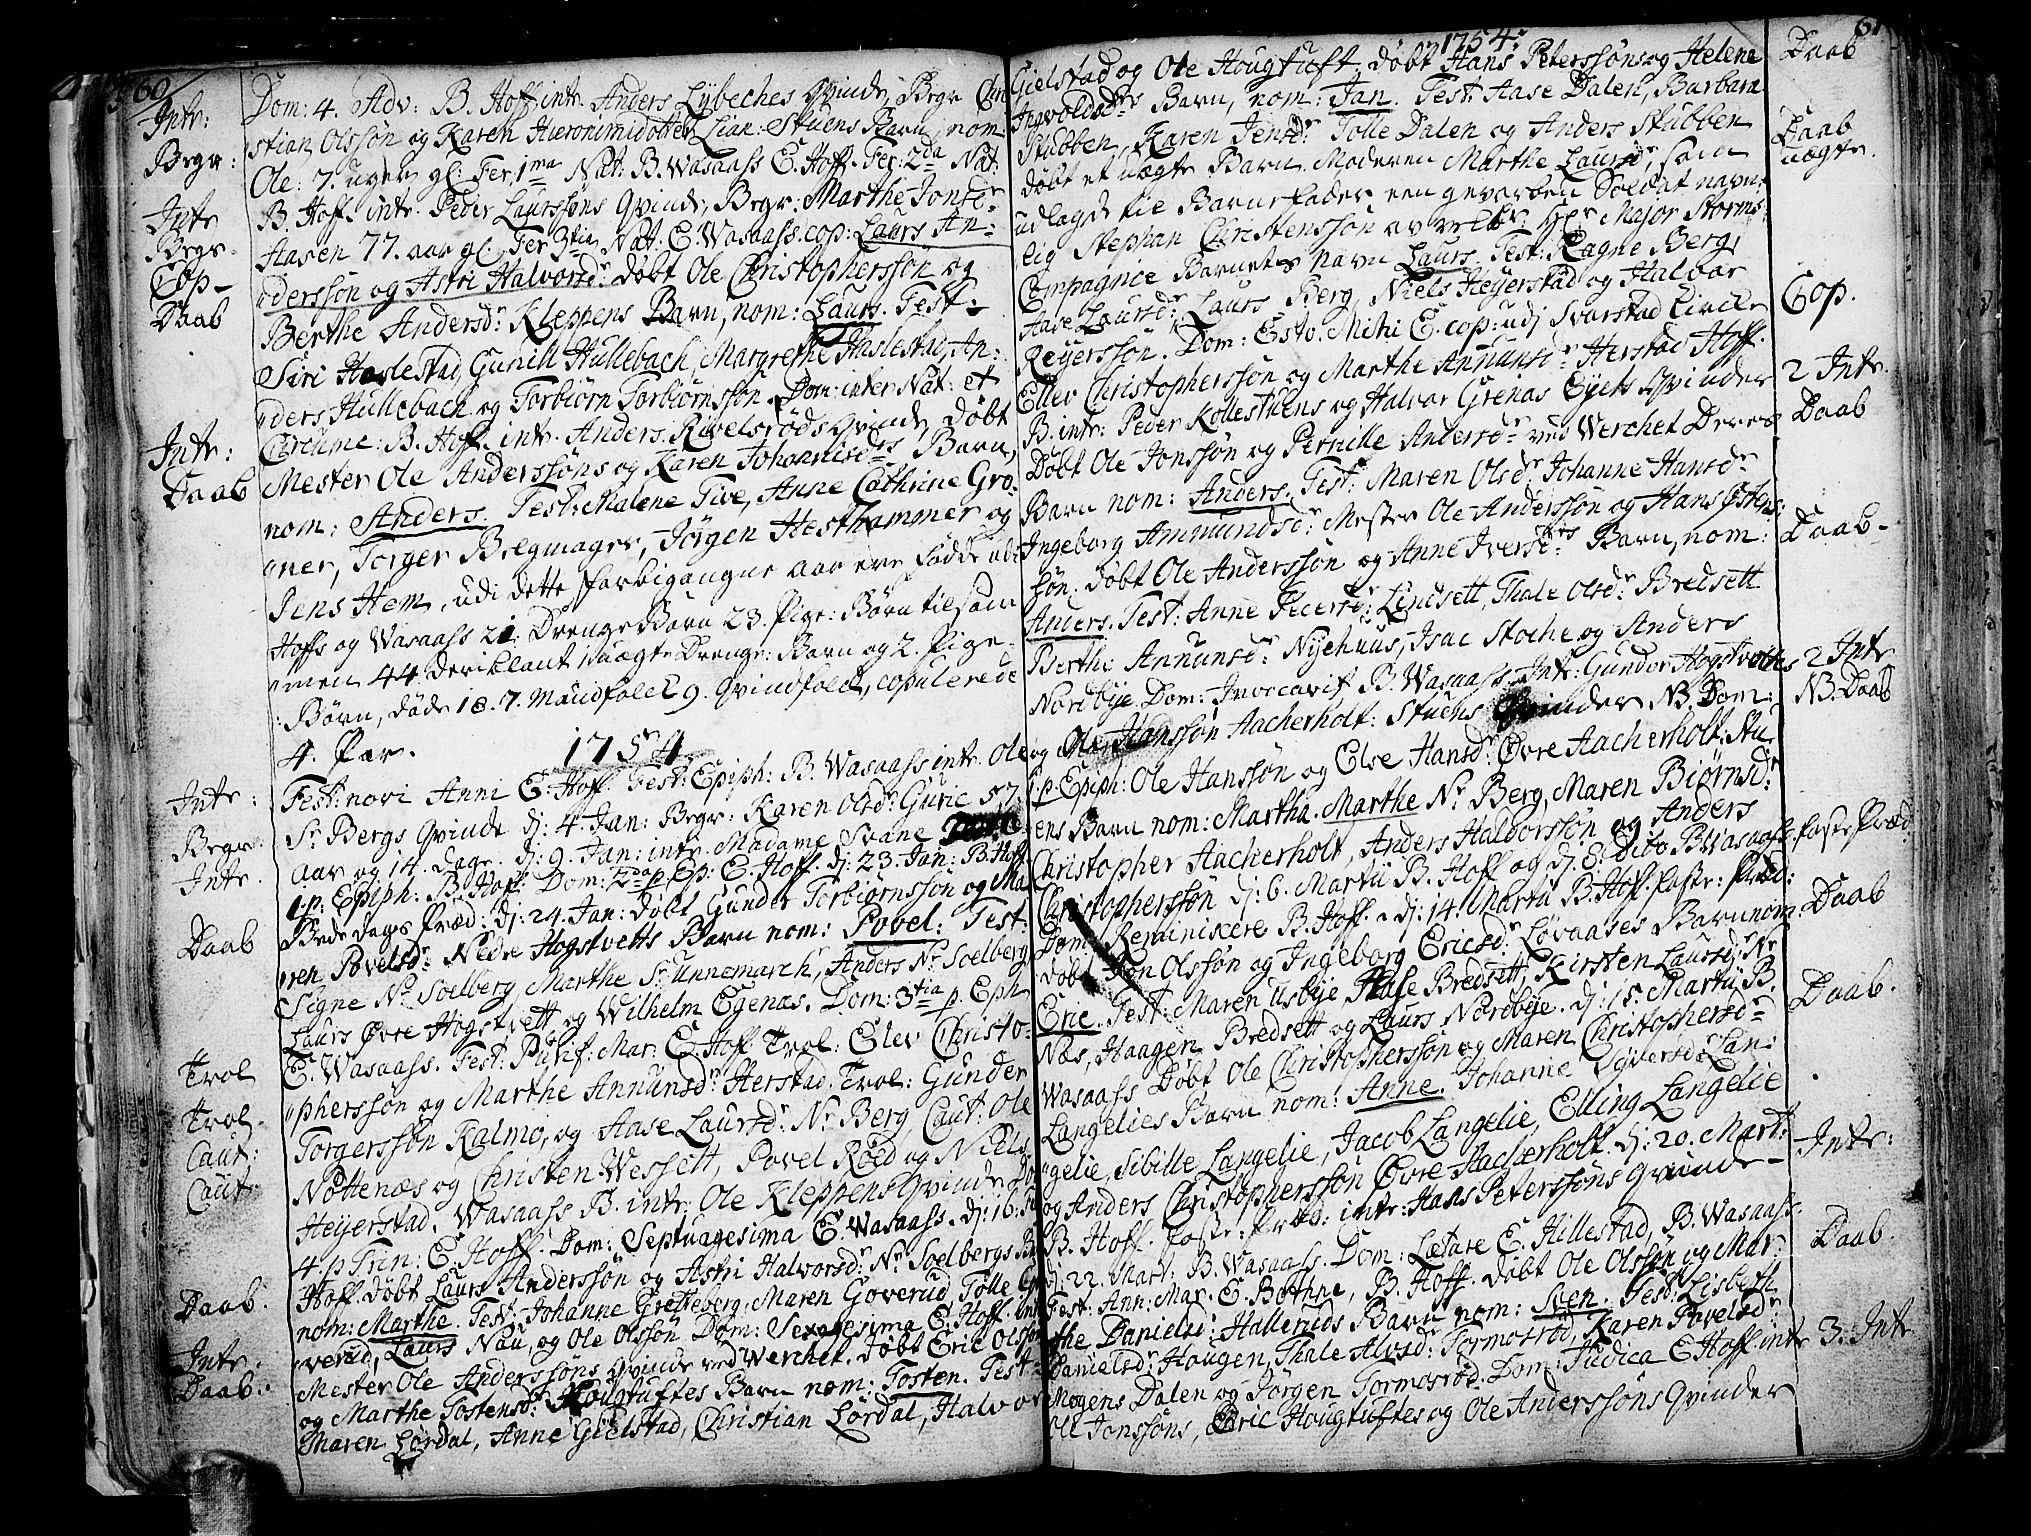 60
Dom: 4. Adv: B. Hoff intr. Anders Lybeches Qvinde, Begr Chri
Intr:
stian Olssøn og Karen Hieronimidotter Lian: Stuens Barn, nom
Begr:
Ole: 7. uger gl: Fer: 1ma Nat: B. Wasaass E. Hoff. Fer: 2da Nat:
Intr
B. Hoff. intr. Peder Laurssøns Qvinde, Begr: Marthe Jonsdr
Begr.
Aasen 77. aar gl. Fer 3tia Nat: E. Wasaass. cop: Laurs An:
Cop-
derssøn og Astri Halvorsdr døbt Ole Christopherssøn og
Daab
Berthe Andersdr: Kleppens Barn, nom: Laurs. Test:
Siri Haslestad, Gunill Hullebach, Margrethe Haslestad, An:
ders Hullebach og Torbiørn Torbiørnssøn. Dom: inter Nat: et
Circume: B. Hoff. intr. Anders Rivelsrøds Qvinde, døbt
Intr:
Mester Ole Anderssøns og Karen Johannisdrs Barn,
Daab
nom: Anders. Test: Malene Tive, Anne Cathrine Gro:
ner, Torger Bregmager, Jørgen Hesthammer og
Jens Hem, udi dette forbigangne aar ere fødde ud:
Hoffs og Wasaass 21. DrengeBørn 23. Pige: Børn tilsam
men 44. deriblant 1 uægte Drenge: Barn og 2. Pige-
Børn, døde 18. 7. Mandfolck 9. Qvindfolck, copulerede
4. Par. 1754
Fest: novi Anni E. Hoff. Fest: Epiph: B. Wasaass intr. Ole
Intr:
Sr Bergs Qvinde dj: 4. Jan: Begr: Karen Olsdr: Gurie 57
Begr:
aar og 14. dage. dj: 9. Jan: intr. Madame Saane
Intr.
1 p: Epiph: B. Hoff: Dom: 2da p Ep: E. Hoff. dj: 23. Jan: B. Hoff
Bede dags Præd: dj: 24. Jan: døbt Gunder Torbiørnssøn og Ma
Daab
ren Povelsdr: Nedre Hogstvetts Barn nom: Povel: Test:
Signe Nr Soelberg, Marthe Sr: Unnemarch, Anders Nr Soelberg
Laurs Øvre Hogstvett og Wilhelm Egenas. Dom: 3tia p. Eph
E. Wasaass. Fest: Purif: Mar: E. Hoff. Trol: Elev Christo-
Trol
pherssøn og Marthe Annunsdr Herstad. Trol: Gunder
Trol.
Torgerssøn Kalmo, og Aase Laursdr. Nr Berg, Caut: Ole
Caut:
Nøttenæs og Christen Wessett, Povel Røed og Niels
Caut:
Heyerstad. Wasaass B. intr: Ole Kleppens Qvinde Do
4. p Trin: E. Hoff. Dom: Septuagesima E. Wasaass. dj: 16.
Hoff. døbt Laurs Anderssøn og Astri Halvorsdr. Nr Soelbergs
Daab.
nom: Marthe. Test: Johanne Gretteberg, Maren Goverud, Tolle Go
verud, Laurs Nau, og Ole Olssøn Dom: Sexagesima E. Hoff. int
Intr:
Mester Ole Anderssøns Qvinde ved Werchet. døbt Eric Olssøn
Daab:
og Marthe Tostensdr Hougtuftes Barn nom: Tosten. Test:
Maren Lørdal, Anne Gielstad, Christian Lørdal, Halvor
61
1754:
Gielstad og Ole Hougtuft, døbt Hans Peterssøns og Helene
Daab
Ingvoldsdrs Barn, nom: Jan. Test: Aase Dalen, Barbara
Stubben, Karen Jensdr Tolle Dalen og Anders Stubben
Daab
døbt et uægte Barn. Moderen Marthe Laursdr, som
uægte.
udlagde til Barnefader een gevorben Soldat navn:
lig Stephan Christenssøn av velbr Hr Major Storms
Compagnie Barnets Navn Laurs. Test: Ragne Berg,
Aase Laursdr. Laurs Berg, Niels Heyerstad og Halvor
Reyerssøn. Dom: Esto Mihi E. cop: udj Svarstad Circle
Cop.
Ellev Christopherssøn og Marthe Annunsdr Herstad Hoff.
B. intr: Peder Kollestuens og Halvor Grenas Eyets Qvinder
2 Intr.
Døbt Ole Jonssøn og Pernille Andersdr ved Werchet Deres
Daab
Barn nom: Anders. Test: Maren Olsdr Johanne Hansdr
Ingeborg Ammundsdr: Mester Ole Anderssøn og Hans Østens:
Daab-
søn. døbt Ole Anderssøn og Anne Iversdrs Barn, nom:
Anders. Test: Anne Pedersdr: Lindsett, Thale Olsdr Bredsett
Berthe Annunsdr Nyehuus, Isac Stoche og Anders
Nordbye. Dom: Invocavit B. Wasaass. Intr: Gunder Hogstvetts
2 Intr
og Ole Hanssøn Aacherholt: Stuens Qvinder NB. Dom:
NB. Daab
1 p. Epiph: Ole Hanssøn og Else Hansdr Øvre Aacherholt: Stu
ens Barn nom: Martha. Marthe Nr Berg, Maren Biørnsdr
Christopher Aacherholt, Anders Halvorssøn og Anders
Christopherssøn dj: 6. Martii B. Hoff og dj. 8. Dito B Wasaass. faste: Præd:
Dom: Reminiscere B. Hoff. dj: 14. Martii B. Hoff. faste: Præd:
døbt Jon Olssøn og Ingeborg Ericsdr Løvaases Barn nom
Daab
Eric. Test: Maren Usbye, Aase Bredsett, Kirsten Laursdr Nr
Næs, Haagen Bredsett og Laurs Nordbye. dj: 15. Martii B.
Daab.
Wasaass Døbt Ole Christopherssøn og Maren Christophersdr
Langelies Barn nom: Anne. Johanne Syversdr: Lan:
gelie, Sibille Langelie, Jacob Langelie, Elling Langelie
og Anders Christopherssøn Øvre Aacherholt. dj: 20. Mart:
B. Hoff. faste: Præd: intr: Hans Peterssøns Qvinde-
Intr:
dj: 22. Mart: B. Wasaass. Dom: Lætare E. Hillestad, B. Wasaass.
Fest: Ann: Mar: E. Bothne, B. Hoff. døbt Ole Olssøn og Mar:
Daab.
the Danielsdr: Halleruds Barn nom: Sven. Test: Lisbeth
Danielsdr: Hougen, Thale Alvsdr Tormosrød, Karen Povelsdr
Mogens Dalen og Jørgen Tormosrød. Dom: Judica E Hoff. intr
3. Intr
Ole Jonssøns, Eric Hougtuftes og Ole Anderssøns Qvinder